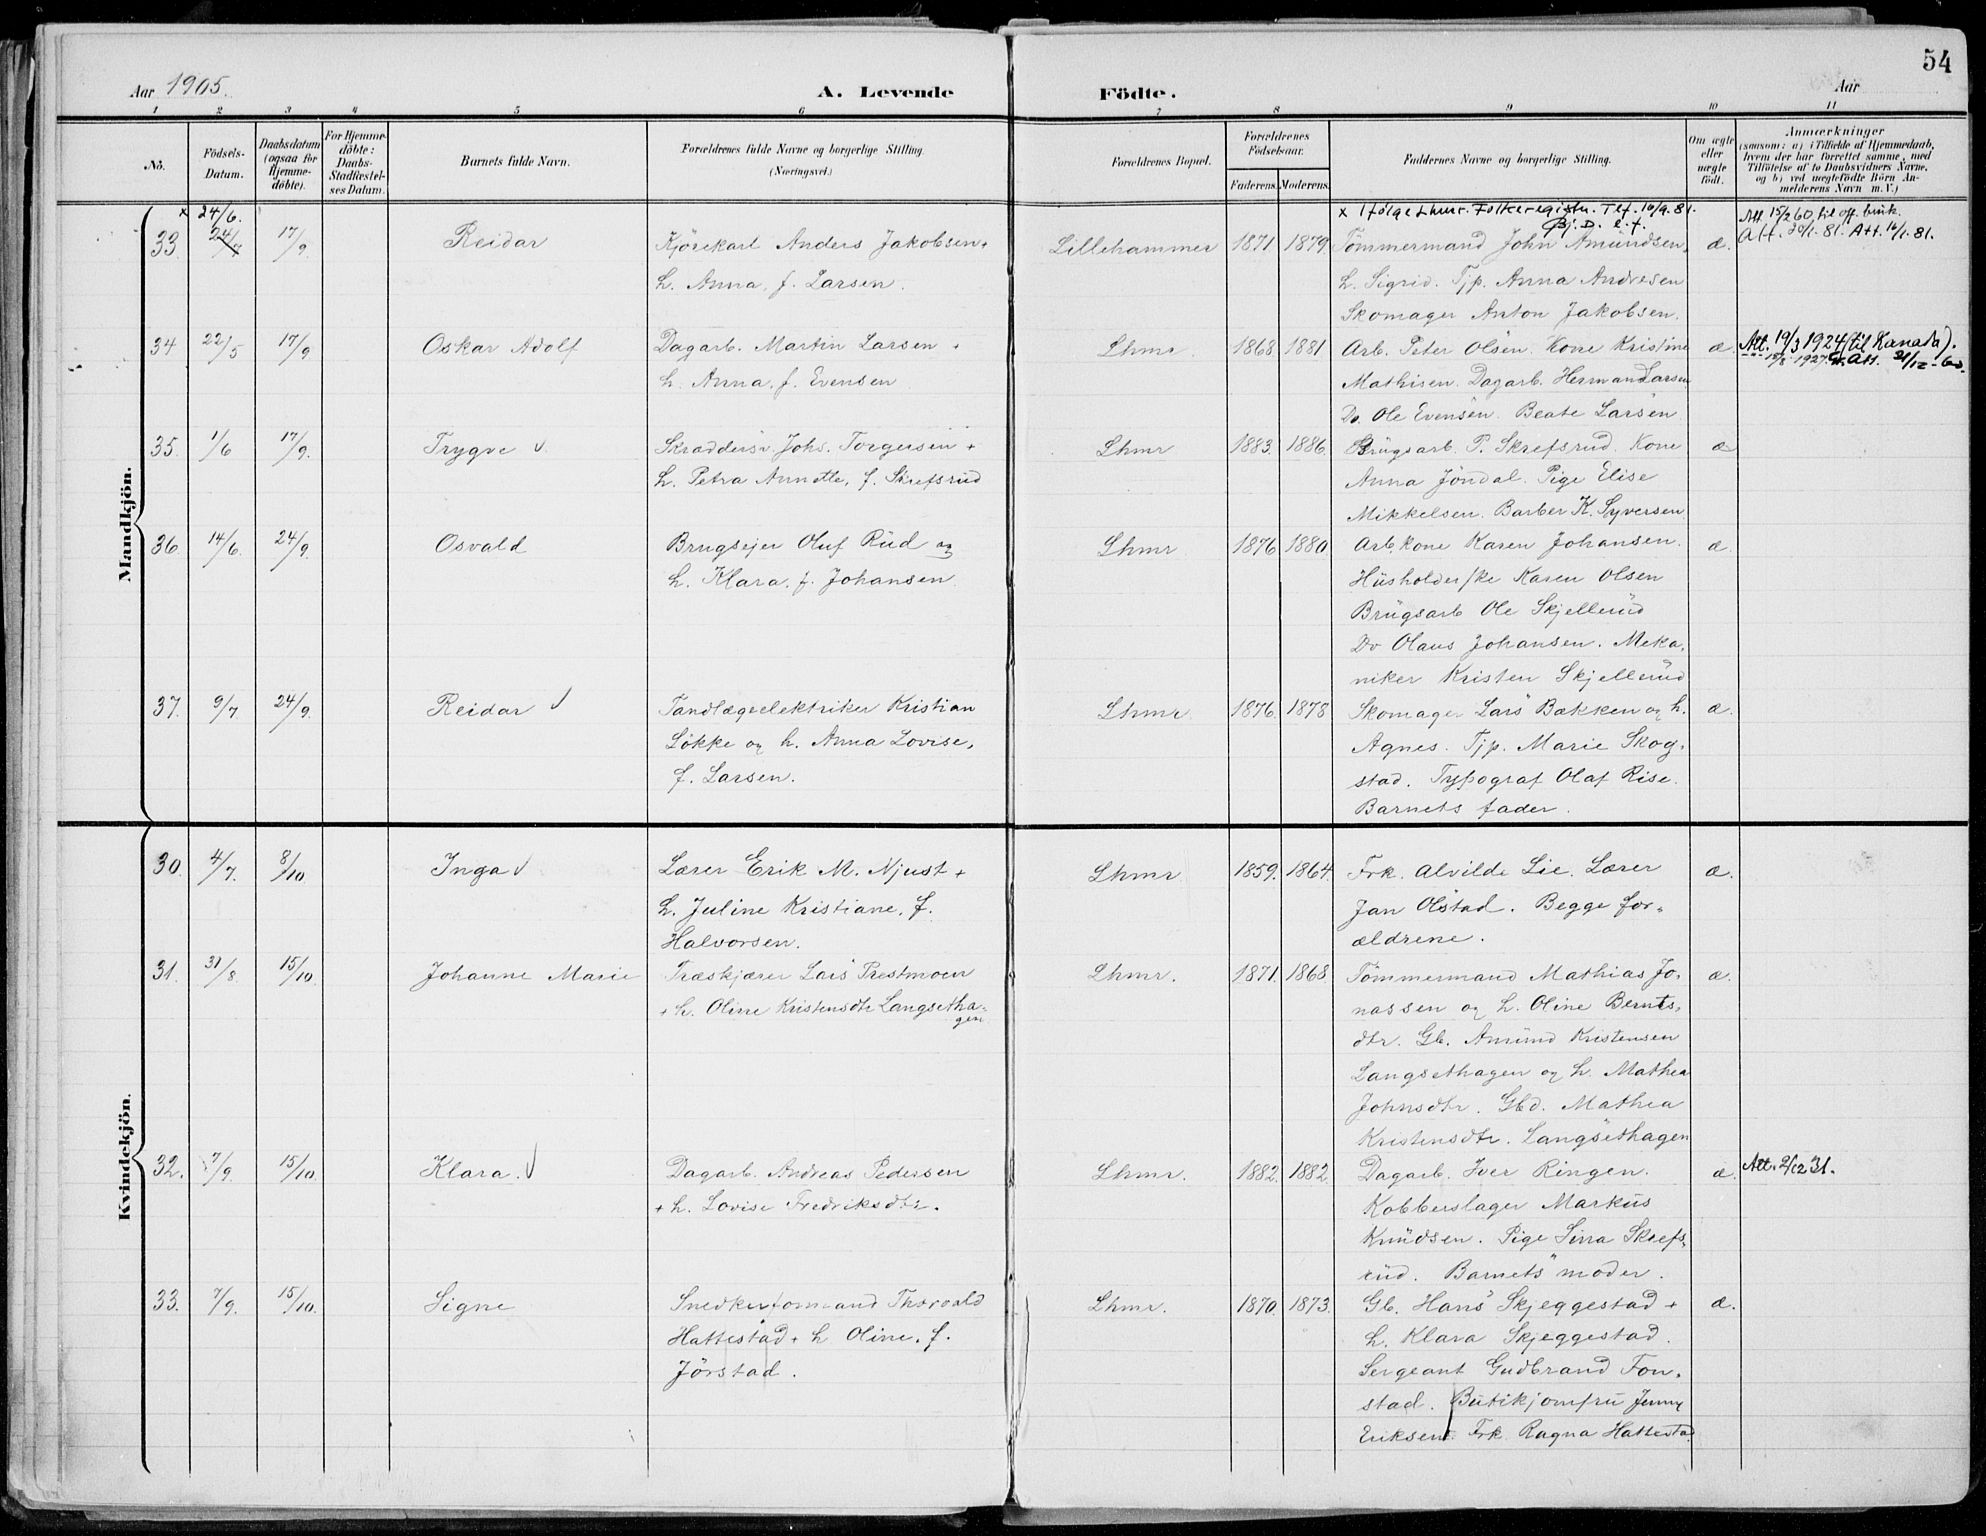 54
Aar 1905.
A. Levende Födte.
Aar
1 2 3 4 5 6 7 8 9 10 11
No.
Födsels-Datum.
Daabsdatum (ogsaa for Hjemmedöbte).
For Hjemmedöbte: Daabs-Stadfæstelses Datum.
Barnets fulde Navn.
Forældrenes fulde Navne og borgerlige Stilling.
(Næringsvei.)
Forældrenes Bopæl.
Forældrenes Födselsaar.
Faderens. Moderens.
Faddernes Navne og borgerlige Stilling.
Om ægte eller uægte födt.
Anmærkninger
(saasom: a) i Tilfælde af Hjemmedaab,
hvem der har forrettet samme, med
Tilföielse af to Daabsvidners Navne,
og b) ved uægtefödte Börn Anmelderens Navn m. V.)
Mandkjön.
x 24/6.
x Ifölge Lhmr. Folkeregistr. Tlf. 16/9.81.
Bj. D. e.f.
Att. 15/2 60 til off. bruk.
Att. 20/1.81. Att. 16/1.81.
33. 24/7 17/9 Reidar Kjörekarl Anders Jakobsen + Lillehammer 1871 1879 Tömmermand John Amundsen, æ.
h. Anna, f. Larsen. h. Sigrid. Tjp. Anna Andresen
Skomager Anton Jakobsen.
34 22/5 17/9 Oskar Adolf Dagarb. Martin Larsen + Lhmr. 1868 1881 Arb. Peter Olsen. Kone Kristine æ. Att. 19/3 1924 (til Kanada).
h. Anna, f. Evensen Mathisen. Dagarb. Herman Larsen
Do. Ole Evensen. Beate Larsen
35. 1/6 17/9. Trygve v. Skræddersv. Johs. Torgersen + Lhmr 1883. 1886. Brugsarb. P. Skrefsrud. Kone æ
h. Petra Annette, f. Skrefsrud Anna Jöndal. Pige Elise
Mikkelsen. Barber K. Syversen
36. 14/6. 24/9. Osvald Brugseier Oluf Rud og Lhmr. 1876 1880. Arb.kone Karen Johansen. æ.
h. Klara, f. Johansen. Husholderske Karen Olsen
Brugsarb Ole Skjellerud
Do Olaus Johansen. Meka-
niker Kristen Skjellerud
37. 9/7 24/9. Reidar v Tandlægeelektriker Kristian Lhmr. 1876. 1878 Skomager Lars Bakken og h. æ.
Lökke og h. Anna Lovise, Agnes. Tjp. Marie Skog-
f. Larsen. stad. Typograf Olaf Rise.
Barnets fader.
Kvindekjön.
30. 4/7. 8/10. Inga v Lærer Erik M. Njust + Lhmr. 1859. 1864. Frk. Alvilde Lie. Lærer æ.
h. Juline Kristiane, f. Jan Olstad. Begge for-
Halvorsen. ældrene.
31. 31/8 15/10. Johanne Marie Træskjærer Lars Prestmoen Lhmr. 1871. 1868 Tömmermand Mathias Jo- æ.
+ h. Oline Kristensdtr Langsetha-gen nassen og h. Oline Bernts-
dtr. Gb. Amund Kristensen
Langsethagen og h. Mathea
Johnsdtr. Gbd. Mathea
Kristensdtr. Langsethagen
32. 7/9. 15/10. Klara. v Dagarb. Andreas Pedersen Lhmr. 1882. 1882. Dagarb. Iver Ringen. æ. Att. 2/12 31.
+ h. Lovise Fredriksdtr. Kobberslager Markus
Knudsen. Pige Sina Skrefs-
rud. Barnets moder.
33. 7/9. 15/10. Signe Snedkerformand Thorvald Lhmr. 1870. 1873. Gb. Hans Skjeggestad + æ.
Hattestad + h Oline, f. h. Klara Skjeggestad.
Jörstad. Sergeant Gudbrand Fon-
stad. Butikjomfru Jenny
Eriksen. Frk Ragna Hattestad